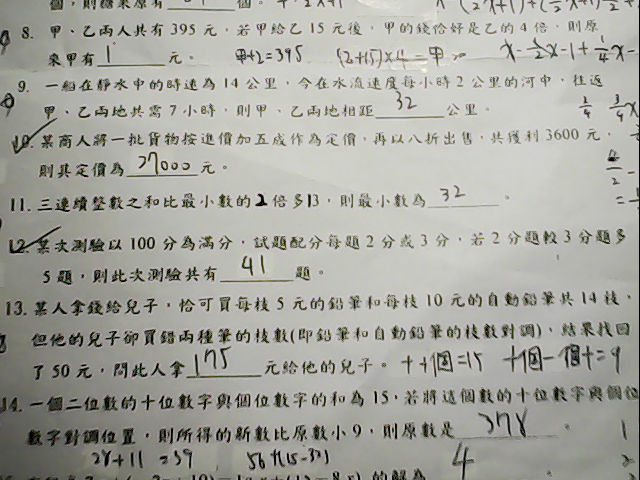 個,則糖果原有 個。
8. 甲、乙兩人共有 395 元,若甲給乙 15 元後,甲的錢恰好是乙的 4 倍,則原
來甲有 1 元。 甲+2=395 (2+15)×4=甲
9. 一船在靜水中的時速為 14 公里,今在水流速度每小時 2 公里的河中,往返
甲、乙兩地共需 7 小時,則甲、乙兩地相距 32 公里。
10. 某商人將一批貨物按進價加五成作為定價,再以八折出售,共獲利 3600 元,
則其定價為 27000 元。
11. 三連續整數之和比最小數的 2 倍多13,則最小數為 32 。
12. 某次測驗以 100 分為滿分,試題配分每題 2 分或 3 分,若 2 分題較 3 分題多
5 題,則此次測驗共有 41 題。
13. 某人拿錢給兒子,恰可買每枝 5 元的鉛筆和每枝 10 元的自動鉛筆共 14 枝,
但他的兒子卻買錯兩種筆的枝數(即鉛筆和自動鉛筆的枝數對調),結果找回
了 50 元,問此人拿 175 元給他的兒子。 十+個=15 十個-個十=9
14. 一個二位數的十位數字與個位數字的和為 15,若將這個數的十位數字與個位
數字對調位置,則所得的新數比原數小 9,則原數是 378 。
28+11=39
4